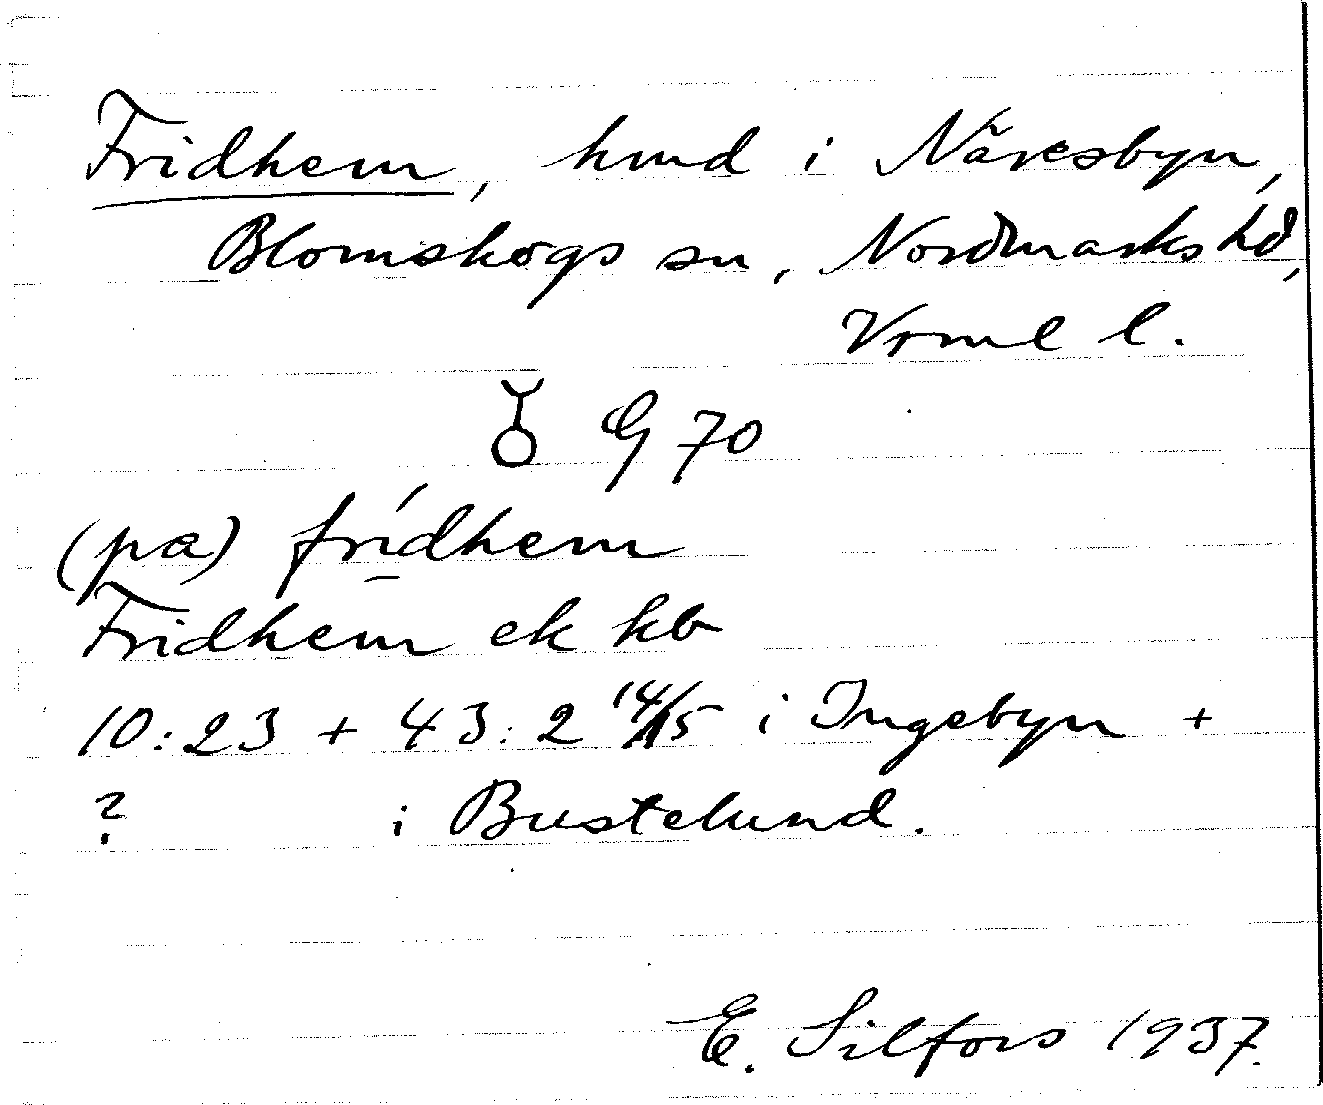 Fridhem, hmd i Näresbyn,
Blomskogs sn, Nordmarks hd,
Vrml l.
♉ G 70
(pa) frídhem
Fridhem ek kb
10:23 + 43:2 14/15 i Ingebyn +
? i Bustelund.
E. Silfors 1937.